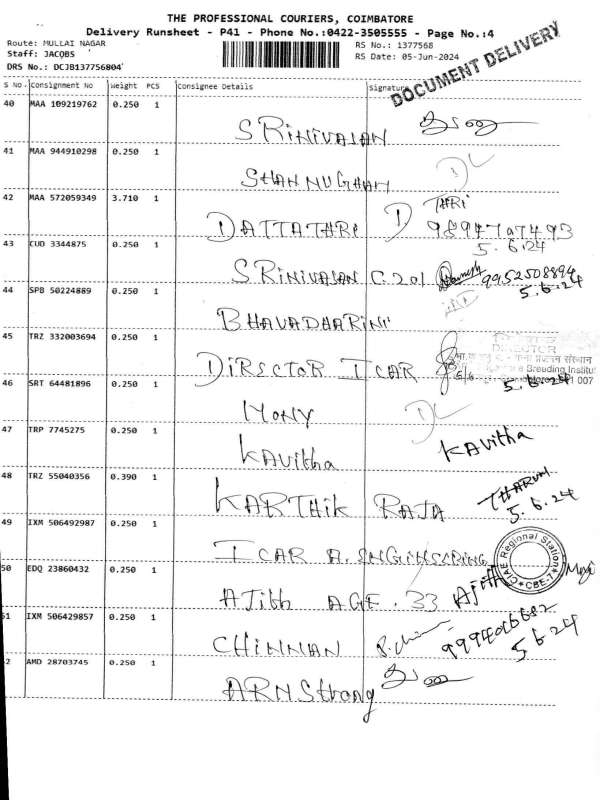 THE PROFESSIONAL COURIERS, COIMBATORE
Delivery Runsheet - P41 - Phone No.:0422-3505555 - Page No.:4
Route: MULLAI NAGAR
RS No.: 1377568
Staff: JACOBS
RS Date: 05-Jun-2024
DRS No.: DCJB137756804
DOCUMENT DELIVERY
S No. Consignment No Weight PCS Consignee Details Signature
40 MAA 109219762 0.250 1
SRINIVASAN
41 MAA 944910298 0.250 1
DL
SHANMUGHAM
42 MAA 572059349 3.710 1
DATTATHRI D THRI
9894707493
5.6.24
43 CUD 3344875 0.250 1
SRINIVASAN C.201 9952508894
5.6.24
44 SPB 50224889 0.250 1
BHAVADHARINI
45 TRZ 332003694 0.250 1
DIRECTOR
संस्थान
DIRECTOR ICAR Breeding Institu
007
5.6.24
46 SRT 64481896 0.250 1
MONY DL
47 TRP 7745275 0.250 1
KAVitha KAVitha
48 TRZ 55040356 0.390 1
KARTHIK RAJA THARUN
5.6.24
49 IXM 506492987 0.250 1
ICAR A.ENGINEERING
CIAE Regional Station
CBE-7
50 EDQ 23860432 0.250 1
AJith AGE.33 AJith
51 IXM 506429857 0.250 1
CHINNAN
5.6.24
2 AMD 28703745 0.250 1
ARNStrong